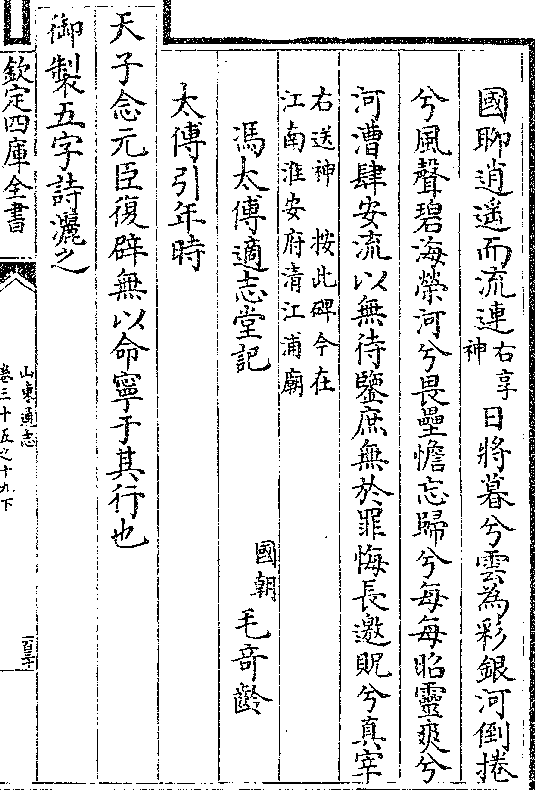 國聊逍遙而流連右享神日將暮兮雲為彩銀河倒捲
兮風聲碧海榮河兮畏壘憺忘歸兮每每昭靈爽兮
河漕肆安流以無待鑒庶無於罪悔長邀貺兮真宰
右送神 按此碑今在
江南淮安府清江浦廟
馮太傅適志堂記 國朝毛奇齡
太傅引年時
天子念元臣復辟無以命寧于其行也
御製五字詩灑之
欽定四庫全書
山東通志
卷三十五之十九下